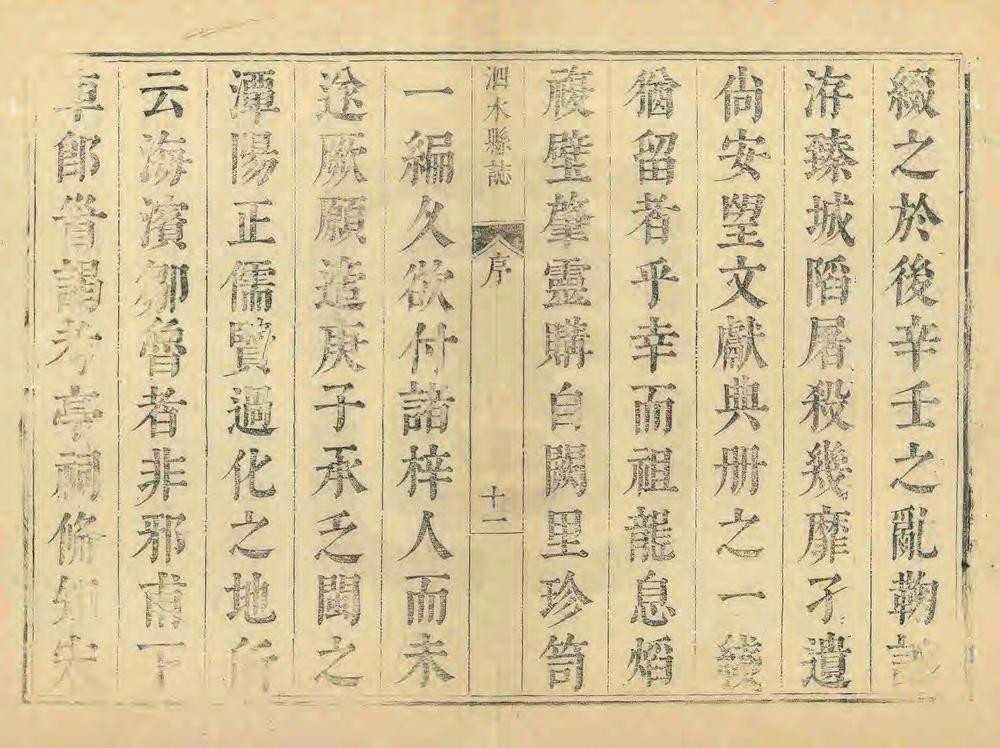 綴之於後辛壬之亂鞠
洊臻城陷屠殺幾靡孑遺
尚安望文獻典册之一綫
猶留者乎幸而祖龍息熖
複壁肇靈購自闕里珍笥
泗水縣誌 序 十一
一編久欲付諸梓人而未
逡厥願造庚子承乏閩之
潭陽正儒賢過化之地所
云海濱鄒魯者非邪甫下
車卽首謁考亭祠脩